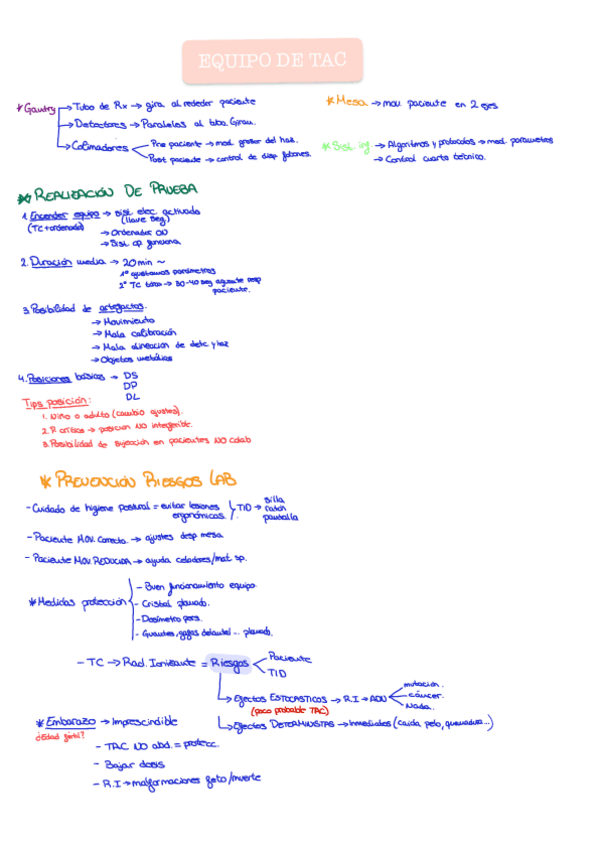 EQUIPO DE TAC
* Gantry → Tubo de Rx → gira alrededor paciente
→ Detectores → Paralelos al tubo. Giran.
→ Colimadores
Pre paciente → mod. grosor del haz.
Post paciente → control de disp fotones.
* Mesa → mov. paciente en 2 ejes
* Sist. inf. → Algoritmos y protocolos → mod. parametros
→ Control cuarto técnico.
* REALIZACIÓN DE PRUEBA
1. Encender equipo → sist. elec. activado
(TC + ordenador) (llave seg.)
→ Ordenador ON
→ Sist. op. funciona
2. Duración media → 20 min ~
1º ajustamos parámetros
2º TC tórax → 30-40 seg aguante resp
paciente.
3. Posibilidad de artefactos.
→ Movimiento
→ Mala calibración
→ Mala alineación de detc. y haz
→ Objetos metálicos
4. Posiciones básicas → DS
DP
DL
Tips posición:
1. Niño o adulto (cambio ajustes).
2. P. crítico → posición NO interferible.
3. Posibilidad de sujección en pacientes NO colab
* PREVENCIÓN RIESGOS LAB
- Cuidado de higiene postural = evitar lesiones
ergonómicas. TID → silla
ratón
pantalla
- Paciente MOV. Correcta. → ajustes desp mesa
- Paciente MOV REDUCIDA → ayuda celadores/mat sp.
* Medidas protección
- Buen funcionamiento equipo.
- Cristal plomado.
- Dosímetro pers.
- Guantes, gafas delantal... plomado.
- TC → Rad. Ionizante = Riesgos
Paciente
TID
→ Efectos ESTOCASTICOS → R.I → ADN
(poco probable TAC)
mutación.
cáncer.
Nada.
→ Efectos DETERMINISTAS → Inmediatos (caída pelo, quemadura...)
* Embarazo → Imprescindible
¿Edad fértil?
- TAC NO abd. = protecc.
- Bajar dosis
- R.I → malformaciones feto/muerte